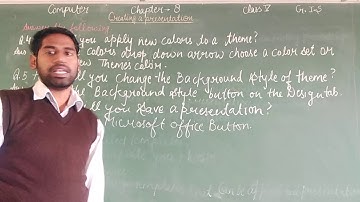 Computer Chapter - 8 Class V G.I.S
Creating a presentation
Answer the following
you apply new colors to a theme?
colors drop down arrow choose a color set or
new Themes color.
Q.5 you change the Background style of theme?
the Background style button on the Design tab.
you save a presentation?
Microsoft office Button.